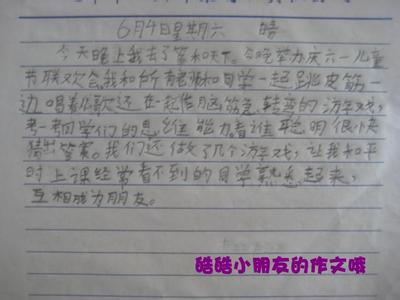 6月4日星期六 晴
今天晚上我去了笨和天下。今晚举办庆六一儿童
节联欢会。我和所有老师和同学一起跳皮筋一
边唱着儿歌还在一起作脑筋急转弯的游戏,
考一考同学们的思维能力看谁聪明很快
猜出答案。我们还做了几个游戏,让我和平
时上课经常看不到的同学熟悉起来,
互相成为朋友。
皓皓小朋友的作文哦